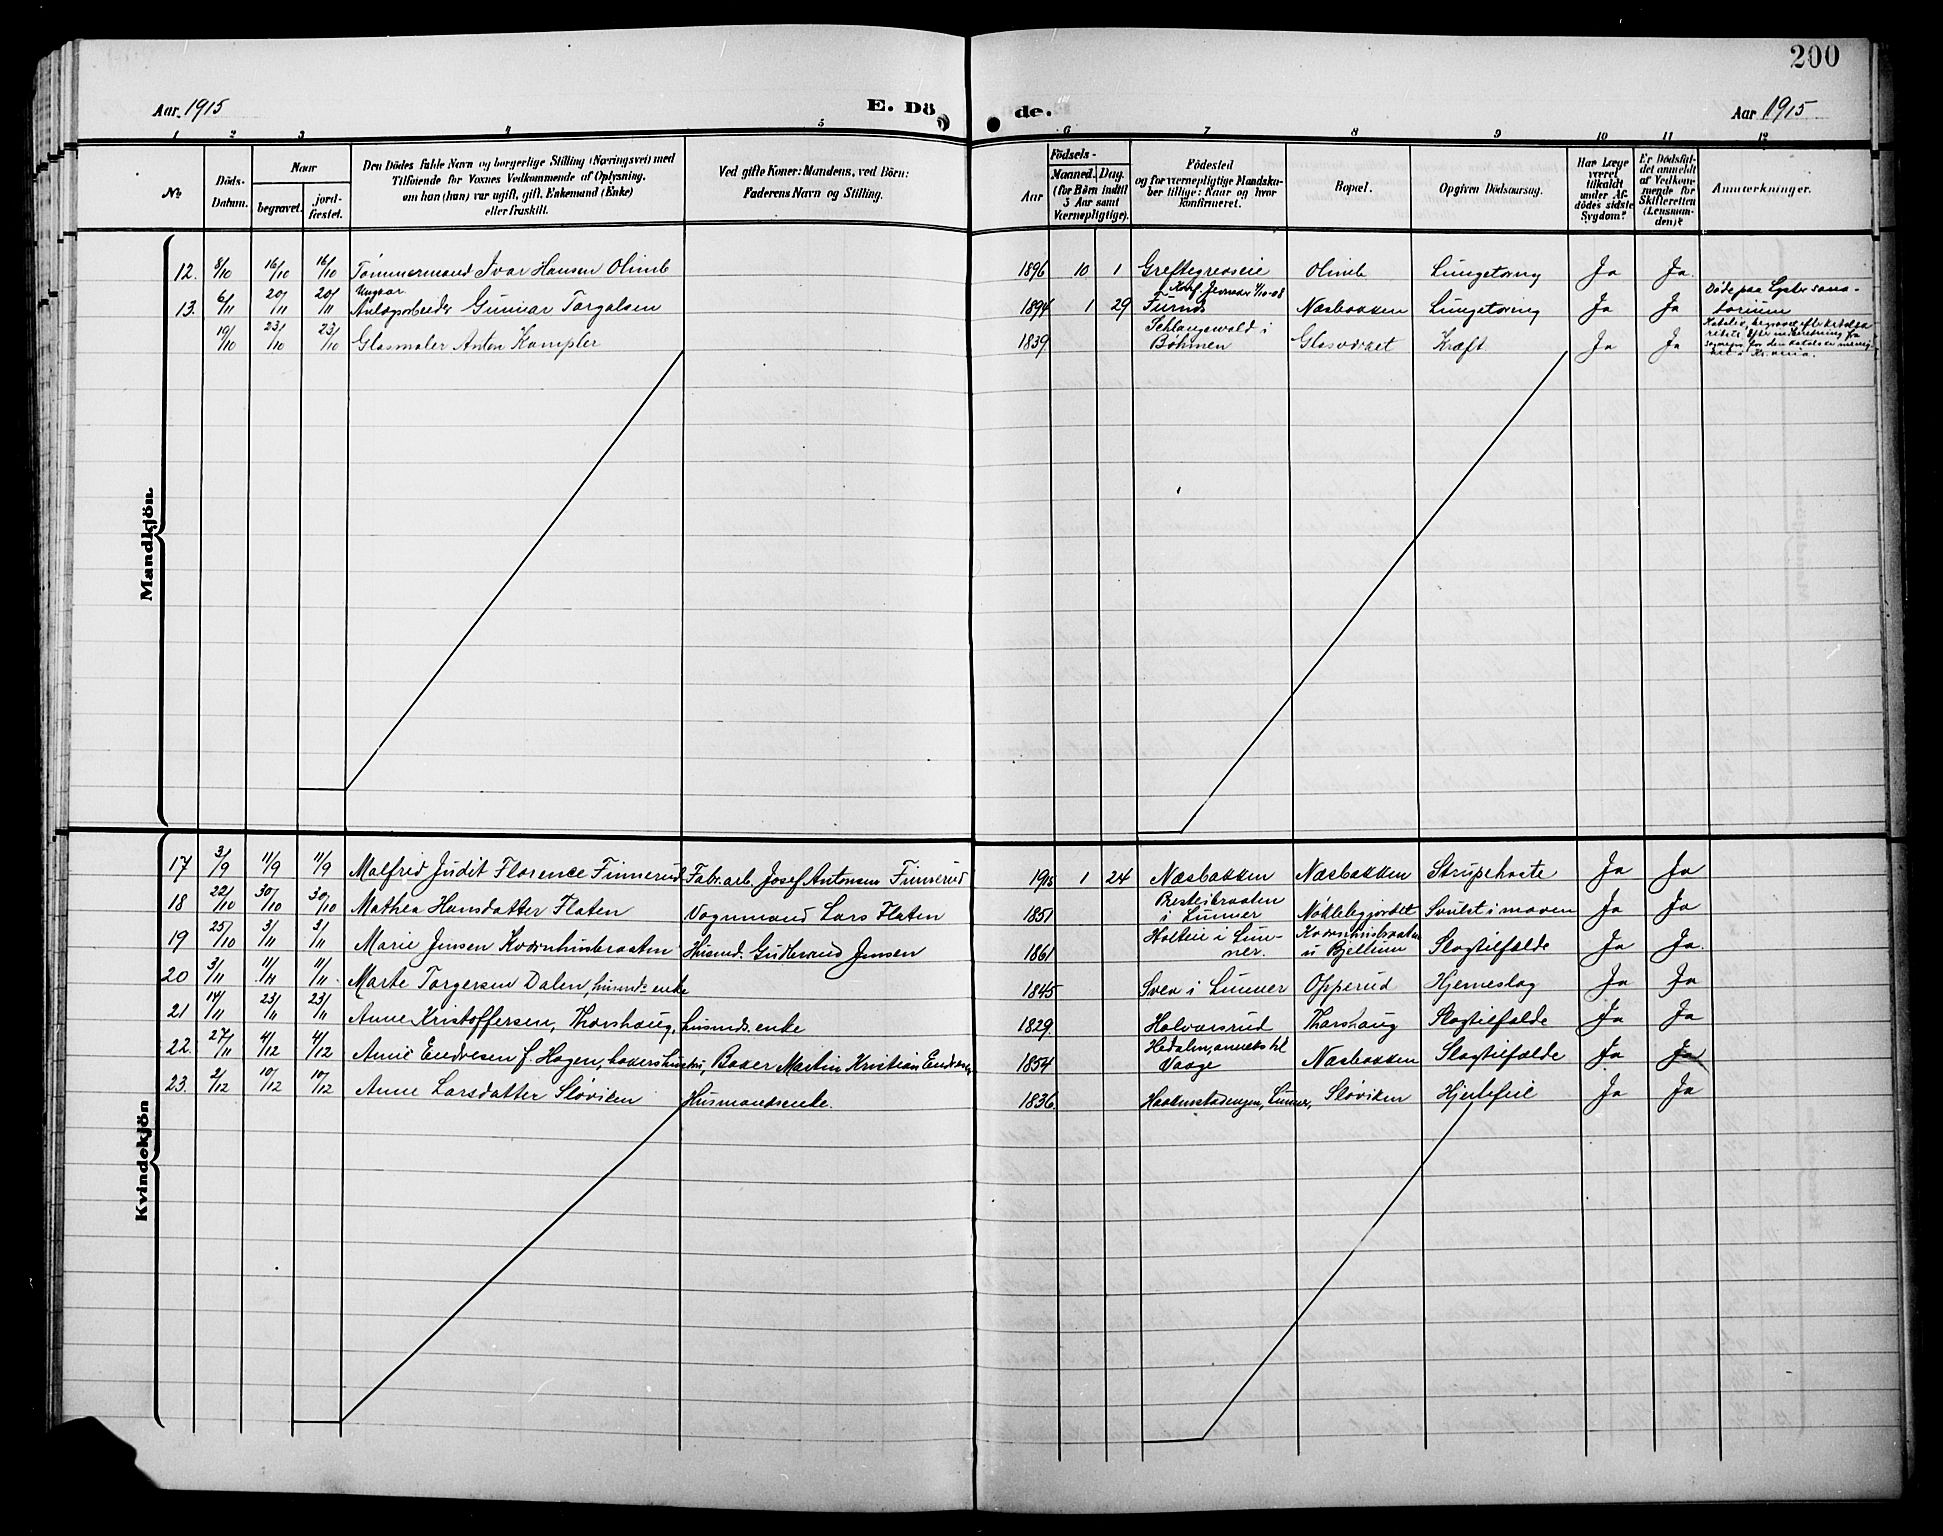 200
Aar 1915 E. Dö de. Aar 1915
1 2 3 4 5 6 7 8 9 10 11 12
No. Döds-Datum. Naar begravet. jordfæstet. Den Dödes fulde Navn og borgerlige Stilling (Næringsvei) med Tilföiende for Voxnes Vedkommende af Oplysning, om han (hun) var ugift, gift, Enkemand (Enke) eller fraskilt. Ved gifte Koner: Mandens, ved Börn: Faderens Navn og Stilling. Födsels- Aar Maaned. Dag. (for Börn indtil 5 Aar samt Værnepligtige). Födested og for værnepligtige Mandskaber tillige: Naar og hvor konfirmeret. Bopæl. Opgiven Dödsaarsag. Har Læge været tilkaldt under Afdödes sidste Sygdom? Er Dödsfaldet anmeldt af Vedkommende for Skifteretten (Lensmanden)? Anmærkninger.
Mandkjön.
12. 8/10 16/10 16/10 Tømmermand Ivar Hansen Olimb 1896 10 1 Greftegreseie Olimb Lungetæring Ja Ja.
Ungkar Konf. Jevnaker 4/10-08 Døde paa Lyster sana-
13. 6/11 20/11 20/11 Anlægsarbeider Gunnar Torgalsen 1894 1 29 Furnes Næsbakken Lungetæring Ja Ja torium
19/10 23/10 23/10 Glasmaler Anton Kampler 1839 Schlangewald i Böhmen Glasværket Kræft Ja Ja
Kvindekjön
17 3/9 11/9 11/9 Malfrid Judit Florence Finnerud Fabr.arb. Josef Antonsen Finnerud 1915 1 24 Næsbakken Næsbakken Strupehoste Ja Ja
18 22/10 30/10 30/10 Mathea Hansdatter Flaten Vognmand Lars Flaten 1851 i Lunner Nøklebygjordet Svulst i maven Ja Ja
19 25/10 3/11 3/11 Marie Jensen Kværnhusbraaten Husmd. Gudbrand Jensen 1861 Holteie i Lunner. Kværnhusbraaten u Bjellum Slagtilfælde Ja Ja.
20 3/11 11/11 11/11 Marte Torgersen Dalen, husmds enke 1845 Sven i Lunner Opperud Hjerneslag Ja Ja
21 14/11 23/11 23/11 Anne Kristoffersen, Thorshaug, husmds. enke 1829. Halvorsrud Thorshaug Slagtilfælde Ja Ja
22. 27/11 4/12 4/12 Anne Endresen f. Hagen, bakers hustru, Baker Martin Kristian Endresen 1854 Hedalen, anneks til Vaage Næsbakken Slagtilfælde Ja Ja
23. 2/12 10/12 10/12 Anne Larsdatter Sløviken Husmandsenke. 1836. Haakenstadengen, Lunner, Sløviken Hjertefeil Ja Ja